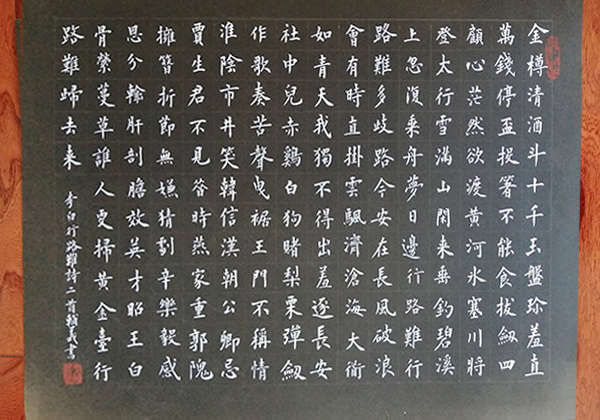 金樽清酒斗十千玉盤珎羞直
萬錢停盃投箸不能食拔劒四
顧心茫然欲渡黃河氷塞川將
登太行雪滿山閑来垂釣碧溪
上忽復乘舟夢日邊行路難行
路難多歧路今安在長風破浪
會有時直掛雲颿濟滄海大衜
如青天我獨不得出羞逐長安
社中兒赤鷄白狗賭梨栗彈劒
作歌奏苦聲曳裾王門不稱情
淮陰市井笑韓信漢朝公卿忌
賈生君不見昝時燕家重郭隗
擁篲折節無嫌猜劇辛樂毅感
恩分輸肝剖膽放英才昭王白
骨縈蔓草誰人更掃黃金臺行
路難歸去来
李白行路難詩二首 書